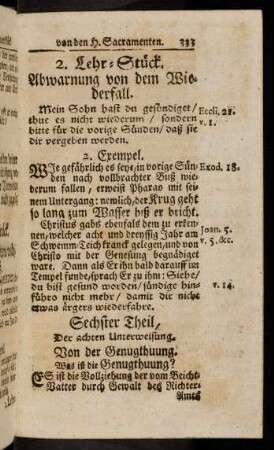 von den H. Sacramenten. 333
2. Lehr-Stück.
Abwarnung von dem Wie-
derfall.
Mein Sohn hast du gesündiget/ Eccli. 21.
thue es nicht wiederum / sondern v. 1.
bitte für die vorige Sünden/ daß sie
dir vergeben werden.
2. Exempel.
WIe gefährlich es seye, in vorige Sün- Exod. 18.
den nach vollbrachter Buß wie-
derum fallen, erweist Pharao mit sei-
nem Untergang: nemlich, der Krug geht
so lang zum Wasser biß er bricht.
Christus gabs ebenfals dem zu erken-
nen, welcher acht und dreyssig Jahr am Joan. 5.
Schwemm-Teich kranck gelegen, und von v. 5. &c.
Christo mit der Genesung begnädiget
ware. Dann als Er ihn bald darauff im
Tempel funde, sprach Er zu ihm: Siehe/
du bist gesund worden / sündige hin- v. 14.
führo nicht mehr / damit dir nicht
etwas ärgers wiederfahre.
Sechster Theil,
Der achten Unterweisung.
Von der Genugthuung.
Was ist die Genugthuung?
ES ist die Vollziehung der vom Beicht-
Vatter durch Gewalt des Richter-
Amts